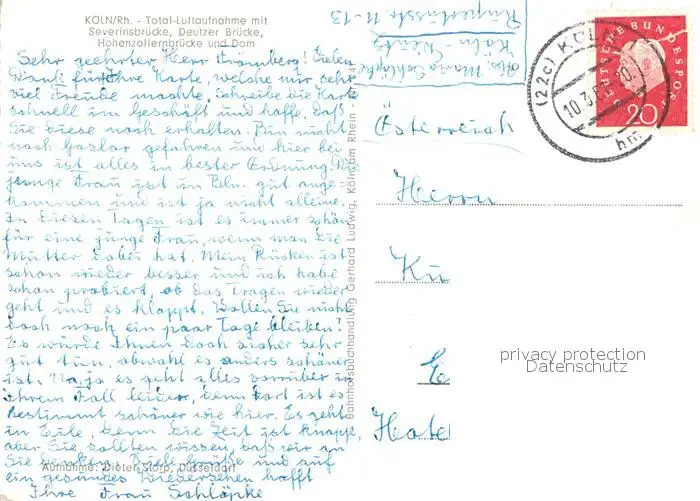 KÖLN/Rh. - Total-Luftaufnahme mit
Severinsbrücke, Deutzer Brücke,
Hohenzollernbrücke und Dom
Sehr geehrter Herr Främberg! Lieben
Dank für Ihre Karte, welche mir sehr
viel Freude machte. Schreibe die Karte
schnell im Geschäft und hoffe, daß
Sie diese noch erhalten. Bin nicht
nach Goslar gefahren und hier bei
uns ist alles in bester Ordnung. Die
junge Frau ist in Bln. gut ange-
kommen und ist ja nicht alleine.
In diesen Tagen ist es immer schön
für eine junge Frau, wenn man die
Mutter dabei hat. Mein Rücken ist
schon wieder besser und ich habe
schon probiert, ob das Tragen wieder
geht und es klappt. Wollen Sie nicht
doch noch ein paar Tage bleiben?
Es würde Ihnen doch sicher sehr
gut tun, obwohl es anders schöner
ist. Na ja es geht alles vorrüber in
Ihrem Fall leider, denn dort ist es
bestimmt schöner wie hier. Es geht
in Eile, denn die Zeit ist knapp,
aber Sie sollten wissen, daß wir an
Sie denken. Viele Grüße und auf
ein gesundes Wiedersehen hofft
Ihre Frau Schlöpke
Aufnahme: Dieter Storp, Düsseldorf
Bahnhofsbuchhandlung Gerhard Ludwig, Köln am Rhein
Abs. Maria Schlöpke
Köln-Deutz
11-13
DEUTSCHE BUNDESPOST
20
(22c) KÖL
10.3.
hm
Österreich
Herrn
Ku
E
Hote
privacy protection
Datenschutz